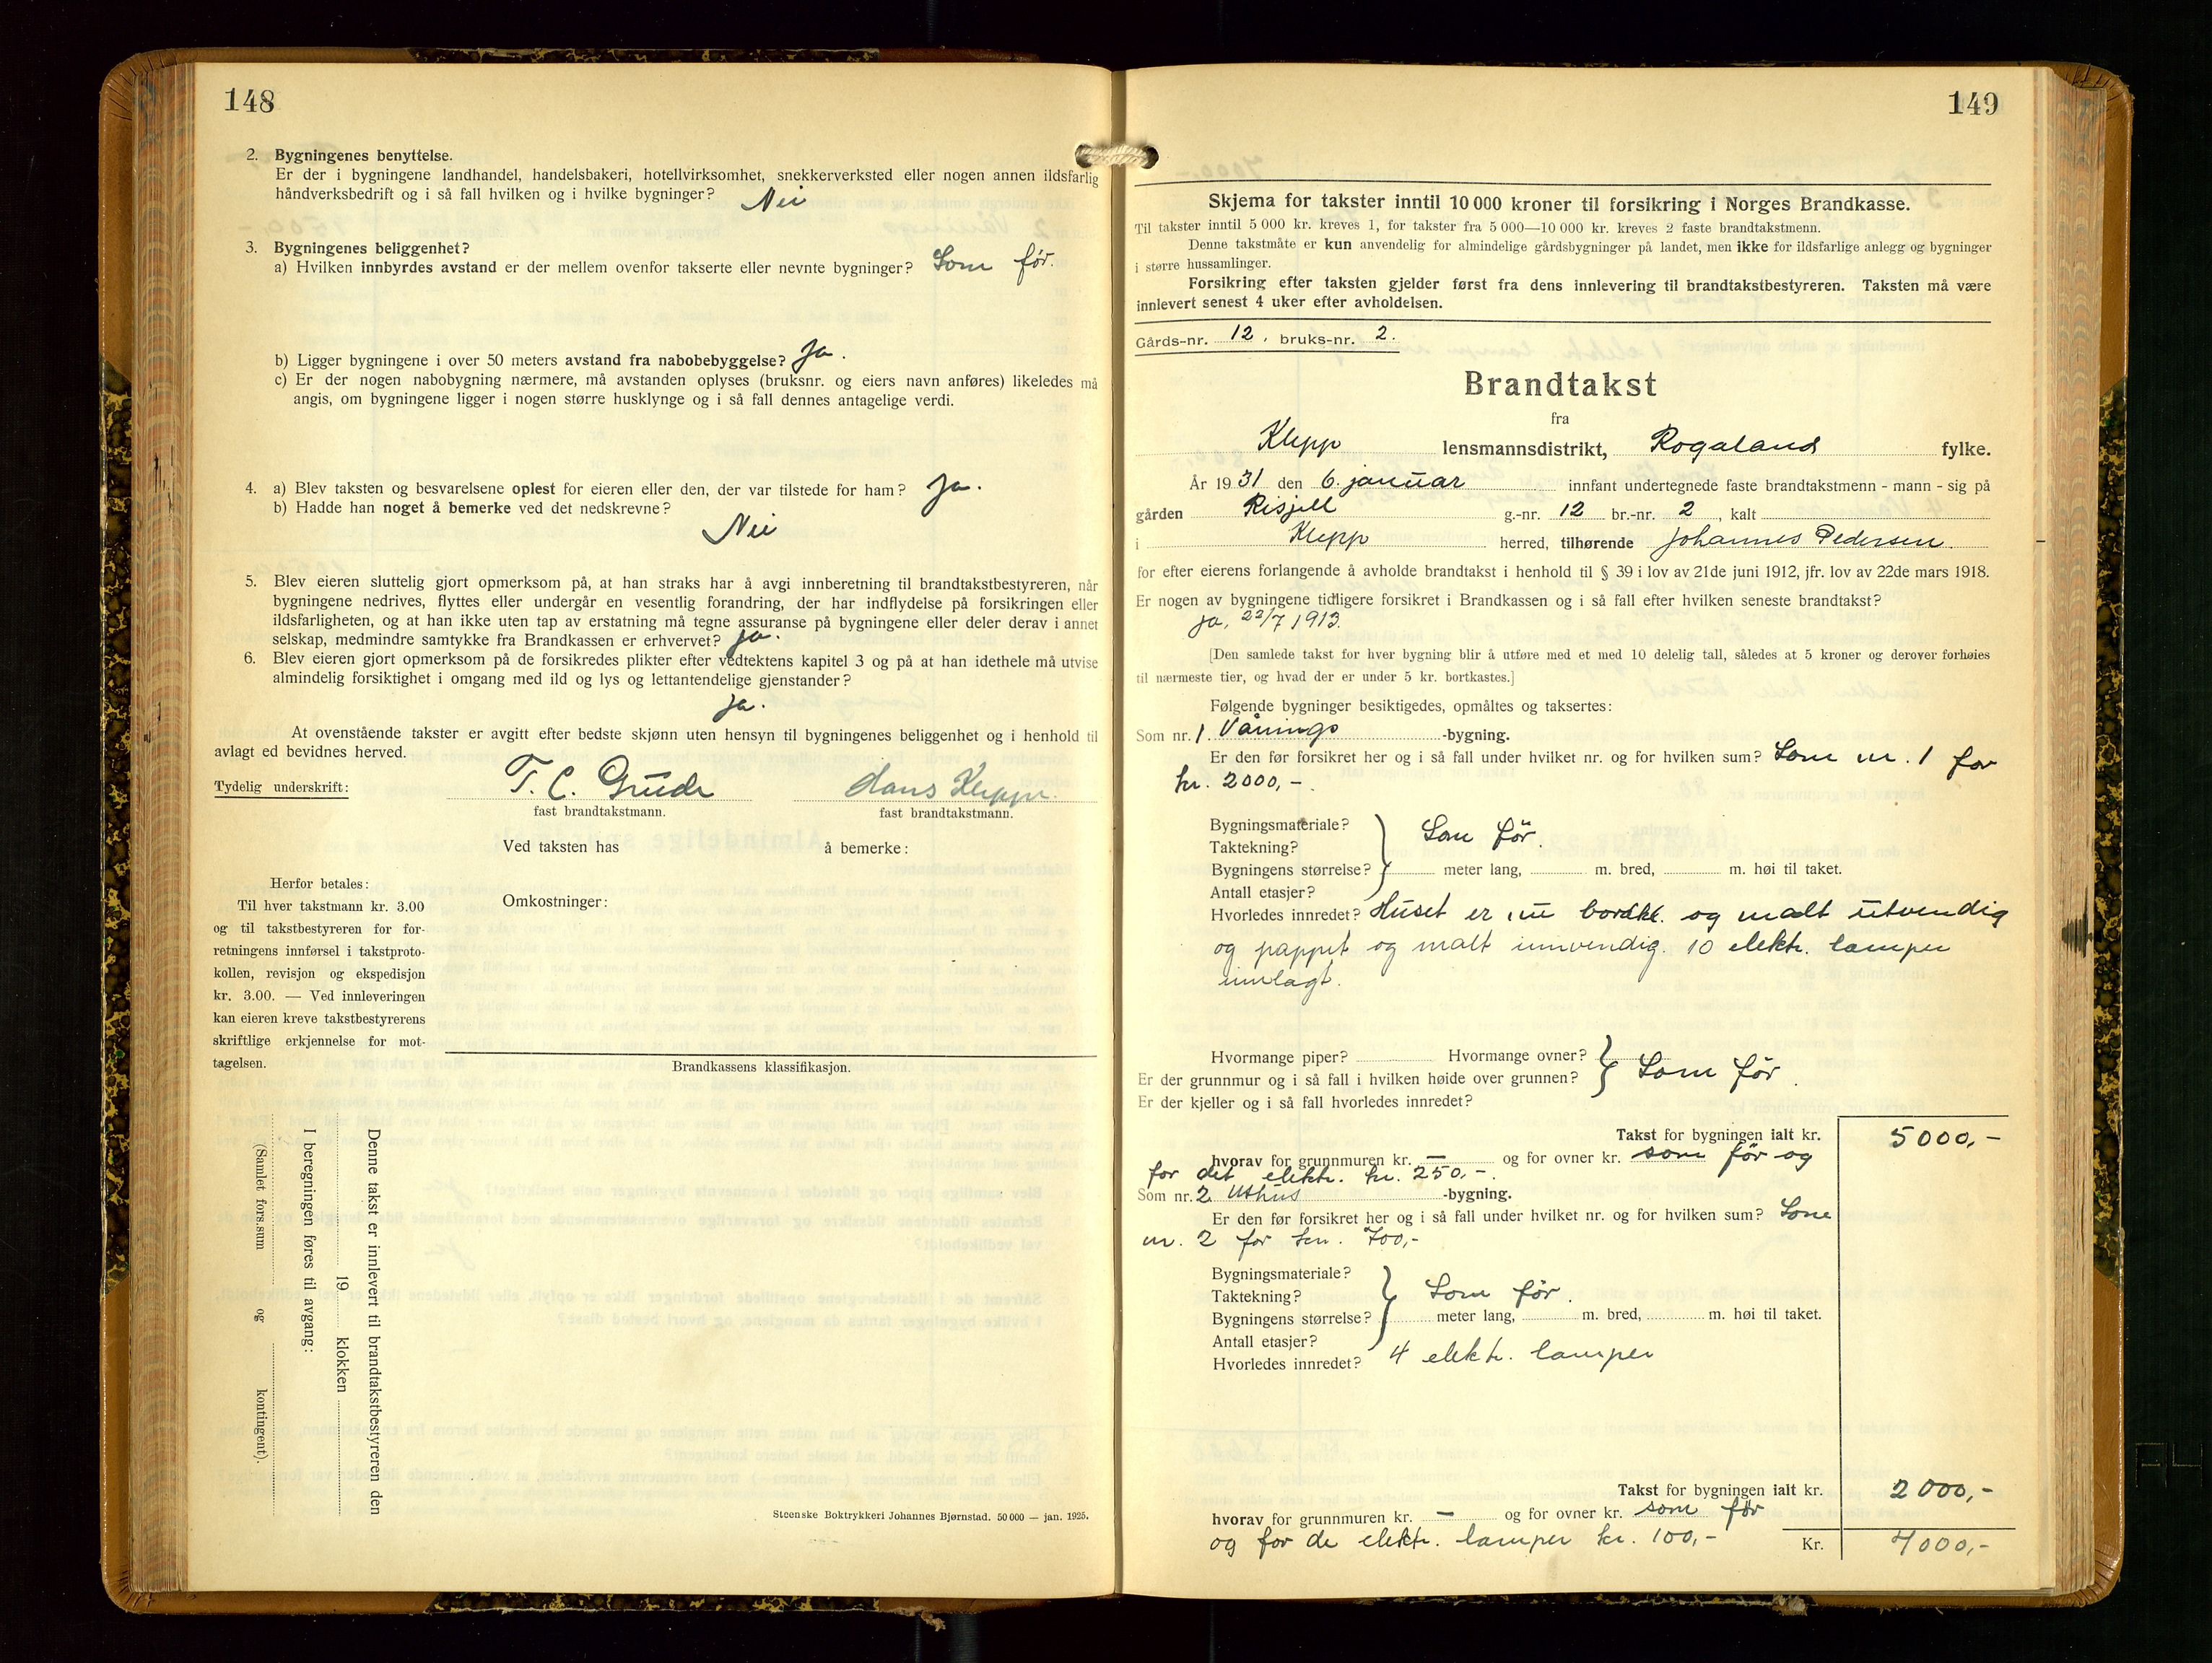 148
2. Bygningenes benyttelse.
Er der i bygningene landhandel, handelsbakeri, hotellvirksomhet, snekkerverksted eller nogen annen ildsfarlig
håndverksbedrift og i så fall hvilken og i hvilke bygninger? Nei
3. Bygningenes beliggenhet?
a) Hvilken innbyrdes avstand er der mellem ovenfor takserte eller nevnte bygninger? Som før.
b) Ligger bygningene i over 50 meters avstand fra nabobebyggelse? Ja.
c) Er der nogen nabobygning nærmere, må avstanden oplyses (bruksnr. og eiers navn anføres) likeledes må
angis, om bygningene ligger i nogen større husklynge og i så fall dennes antagelige verdi.
4. a) Blev taksten og besvarelsene oplest for eieren eller den, der var tilstede for ham? Ja.
b) Hadde han noget å bemerke ved det nedskrevne?
Nei
5. Blev eieren sluttelig gjort opmerksom på, at han straks har å avgi innberetning til brandtakstbestyreren, når
bygningene nedrives, flyttes eller undergår en vesentlig forandring, der har indflydelse på forsikringen eller
ildsfarligheten, og at han ikke uten tap av erstatning må tegne assuranse på bygningene eller deler derav i annet
selskap, medmindre samtykke fra Brandkassen er erhvervet? Ja.
6. Blev eieren gjort opmerksom på de forsikredes plikter efter vedtektens kapitel 3 og på at han idethele må utvise
almindelig forsiktighet i omgang med ild og lys og lettantendelige gjenstander?
Ja.
At ovenstående takster er avgitt efter bedste skjønn uten hensyn til bygningenes beliggenhet og i henhold til
avlagt ed bevidnes herved.
Tydelig underskrift: T. C. Grude Hans Kleppe.
fast brandtakstmann. fast brandtakstmann.
Ved taksten has å bemerke:
Herfor betales:
Til hver takstmann kr. 3.00
og til takstbestyreren for for-
retningens innførsel i takstproto-
kollen, revisjon og ekspedisjon
kr. 3.00. — Ved innleveringen
kan eieren kreve takstbestyrerens
skriftlige erkjennelse for mot-
tagelsen.
Omkostninger:
Brandkassens klassifikasjon.
Denne takst er innlevert til brandtakstbestyreren den
19 klokken
I beregningen føres til avgang:
(Samlet fors.sum og kontingent).
Steenske Boktrykkeri Johannes Bjørnstad. 50 000 — jan. 1925.
149
Skjema for takster inntil 10 000 kroner til forsikring i Norges Brandkasse.
Til takster inntil 5 000 kr. kreves 1, for takster fra 5 000—10 000 kr. kreves 2 faste brandtakstmenn.
Denne takstmåte er kun anvendelig for almindelige gårdsbygninger på landet, men ikke for ildsfarlige anlegg og bygninger
i større hussamlinger.
Forsikring efter taksten gjelder først fra dens innlevering til brandtakstbestyreren. Taksten må være
innlevert senest 4 uker efter avholdelsen.
Gårds-nr. 12, bruks-nr. 2.
Brandtakst
fra
Klepp lensmannsdistrikt, Rogaland fylke.
År 1931 den 6. januar innfant undertegnede faste brandtakstmenn - mann - sig på
gården Risjell g.-nr. 12 br.-nr. 2, kalt
i Klepp herred, tilhørende Johannes Pedersen.
for efter eierens forlangende å avholde brandtakst i henhold til § 39 i lov av 21de juni 1912, jfr. lov av 22de mars 1918.
Er nogen av bygningene tidligere forsikret i Brandkassen og i så fall efter hvilken seneste brandtakst?
Ja, 22/7 1913.
[Den samlede takst for hver bygning blir å utføre med et med 10 delelig tall, således at 5 kroner og derover forhøies
til nærmeste tier, og hvad der er under 5 kr. bortkastes.]
Følgende bygninger besiktigedes, opmåltes og taksertes:
Som nr. 1. Vånings -bygning.
Er den før forsikret her og i så fall under hvilket nr. og for hvilken sum? Som nr. 1 for
kr. 2000,-.
Bygningsmateriale?
Taktekning? Som før.
Bygningens størrelse? meter lang, m. bred, m. høi til taket.
Antall etasjer?
Hvorledes innredet? Huset er nu bordkl. og malt utvendig
og pappet og malt innvendig. 10 elektr. lamper
innlagt.
Hvormange piper? Hvormange ovner?
Er der grunnmur og i så fall i hvilken høide over grunnen? Som før.
Er der kjeller og i så fall hvorledes innredet?
Takst for bygningen ialt kr. 5000,-
hvorav for grunnmuren kr. — og for ovner kr. som før og
for det elektr. kr. 250,-.
Som nr. 2 Uthus -bygning.
Er den før forsikret her og i så fall under hvilket nr. og for hvilken sum? Som
nr. 2 for kr. 700,-
Bygningsmateriale?
Taktekning? Som før.
Bygningens størrelse? meter lang, m. bred, m. høi til taket.
Antall etasjer?
Hvorledes innredet? 4 elektr. lamper
Takst for bygningen ialt kr. 2000,-
hvorav for grunnmuren kr. — og for ovner kr. som før
og for de elektr. lamper kr. 100,- Kr. 7000,-